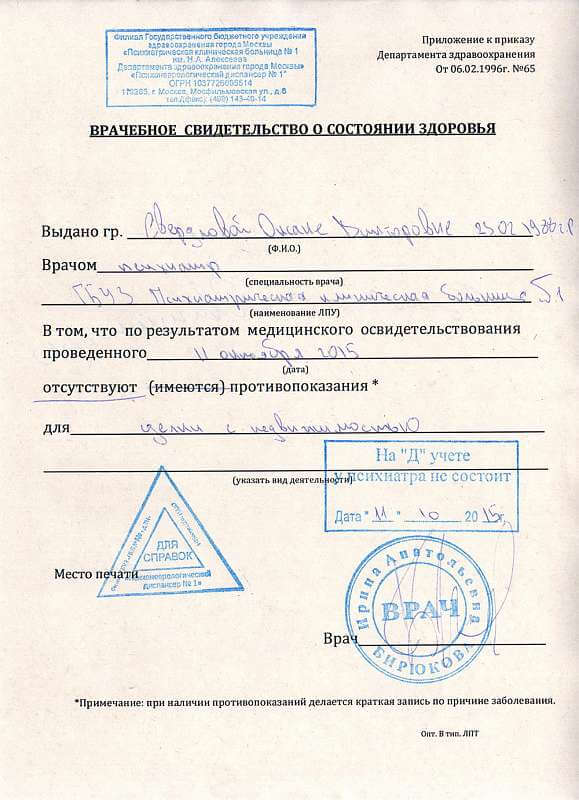 Филиал Государственного бюджетного учреждения
здравоохранения города Москвы
«Психиатрическая клиническая больница № 1
им. Н.А. Алексеева
Департамента здравоохранения города Москвы»
«Психоневрологический диспансер № 1"
ОГРН 1037725095514
г. Москва, Мосфильмовская ул., д.6
тел./факс: (499) 143-40-14
Приложение к приказу
Департамента здравоохранения
От 06.02.1996г. №65
ВРАЧЕБНОЕ СВИДЕТЕЛЬСТВО О СОСТОЯНИИ ЗДОРОВЬЯ
Выдано гр. Оксане Викторовне
(Ф.И.О.)
Врачом психиатр
(специальность врача)
ГБУЗ Психиатрическая клиническая больница №1
(наименование ЛПУ)
В том, что по результатом медицинского освидетельствования
проведенного 11 октября 2015
(дата)
отсутствуют (имеются) противопоказания *
для сделки с недвижимостью
(указать вид деятельности)
На "Д" учете
у психиатра не состоит
Дата "11" 10 2015г.
ДЛЯ
СПРАВОК
Психоневрологический
диспансер № 1»
Место печати
Ирина Анатольевна
ВРАЧ
БИРЮКОВА
Врач
*Примечание: при наличии противопоказаний делается краткая запись по причине заболевания.
Опт. В тип. ЛПТ